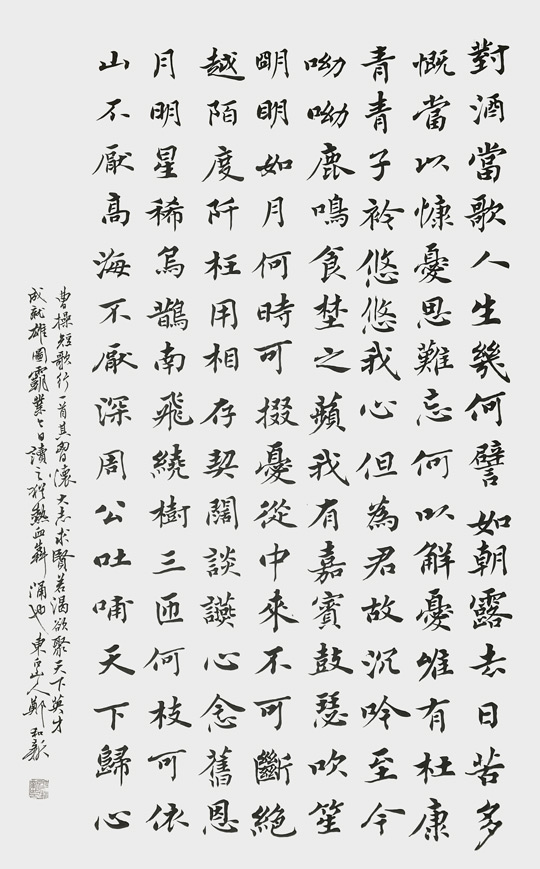 對酒當歌人生幾何譬如朝露去日苦多
慨當以慷憂思難忘何以解憂唯有杜康
青青子衿悠悠我心但為君故沉吟至今
呦呦鹿鳴食埜之蘋我有嘉賓鼓瑟吹笙
明明如月何時可掇憂從中來不可斷絕
越陌度阡枉用相存契闊談讌心念舊恩
月明星稀烏鵲南飛繞樹三匝何枝可依
山不厭高海不厭深周公吐哺天下歸心
曹操短歌行一首其胸懷大志求賢若渴欲聚天下英才
成就雄圖霸業今日讀之猶熱血犇涌也東白山人鄭和